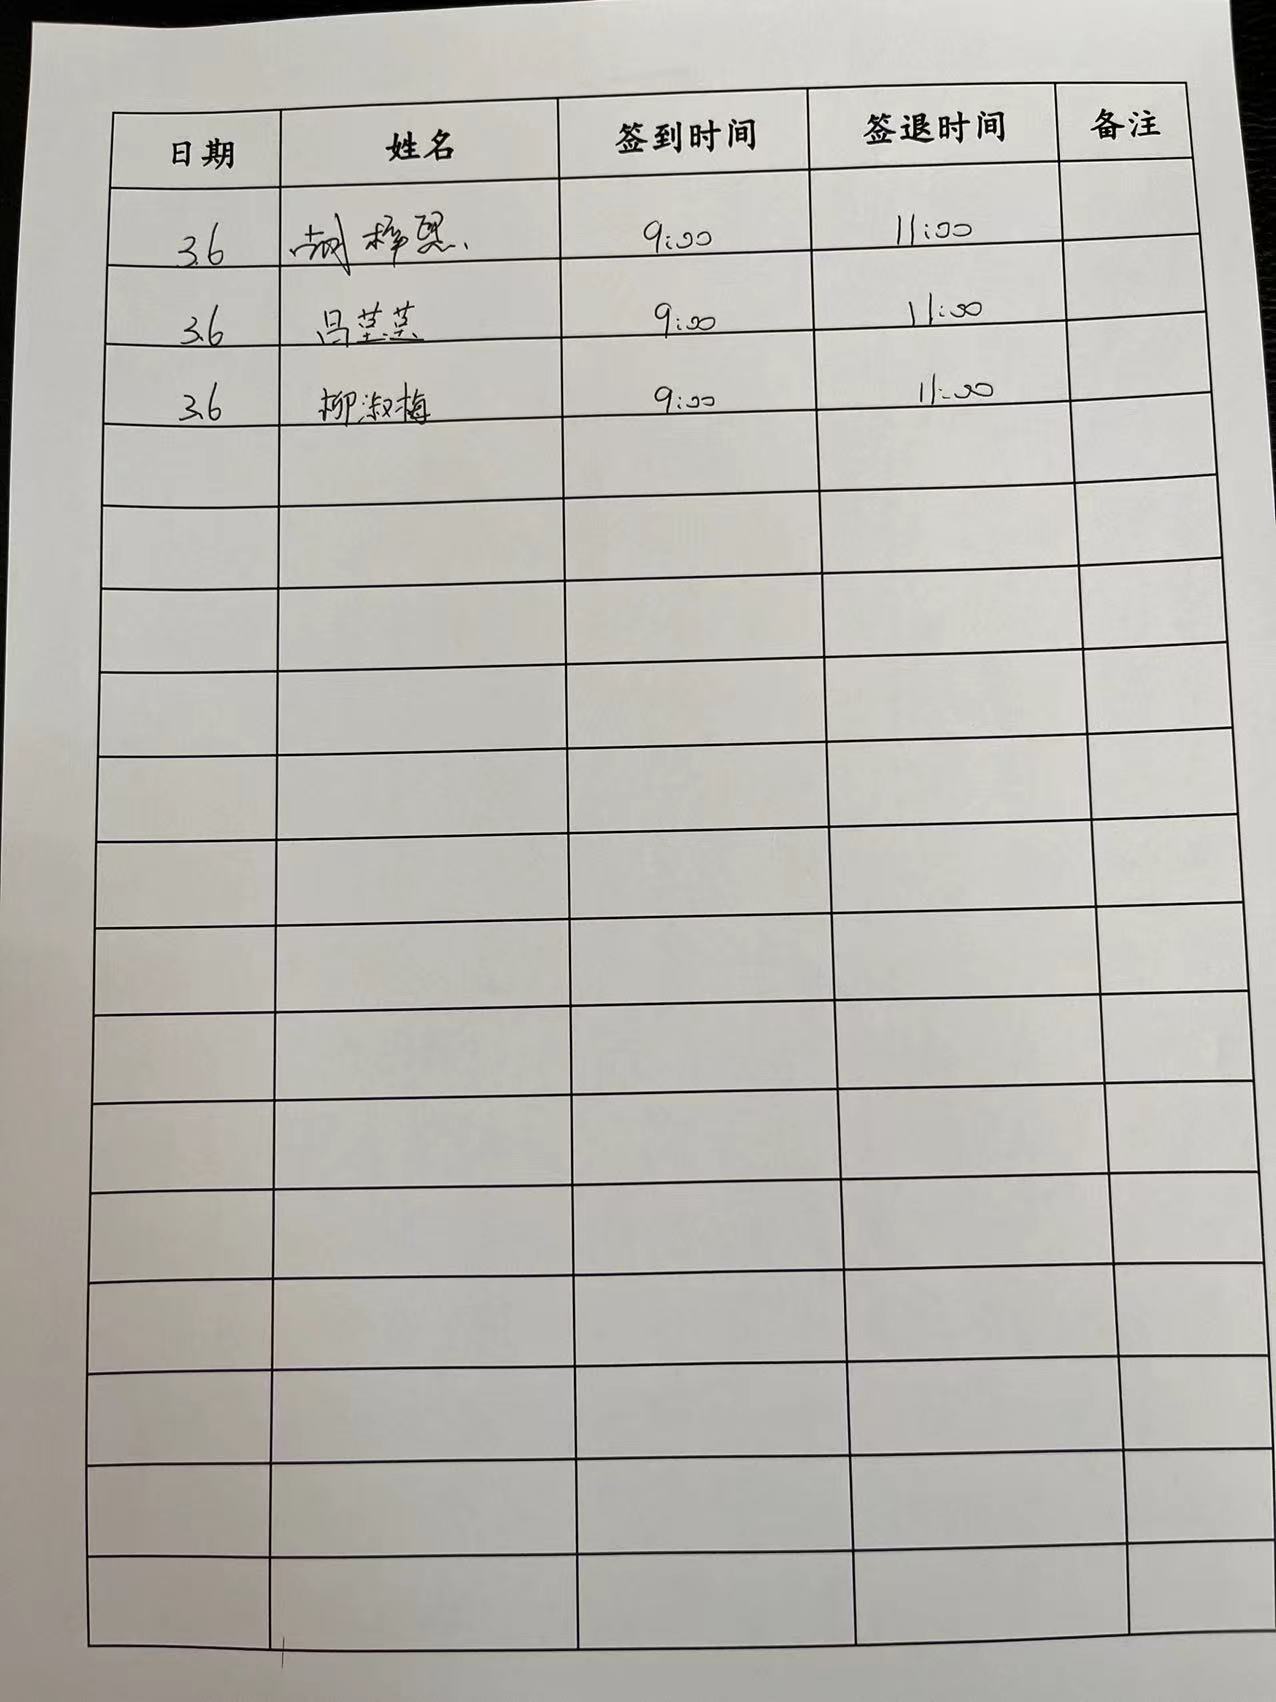 日期 姓名 签到时间 签退时间 备注
3.6 胡梓恩 9:00 11:00
3.6 吕 9:00 11:00
3.6 柳淑梅 9:00 11:00